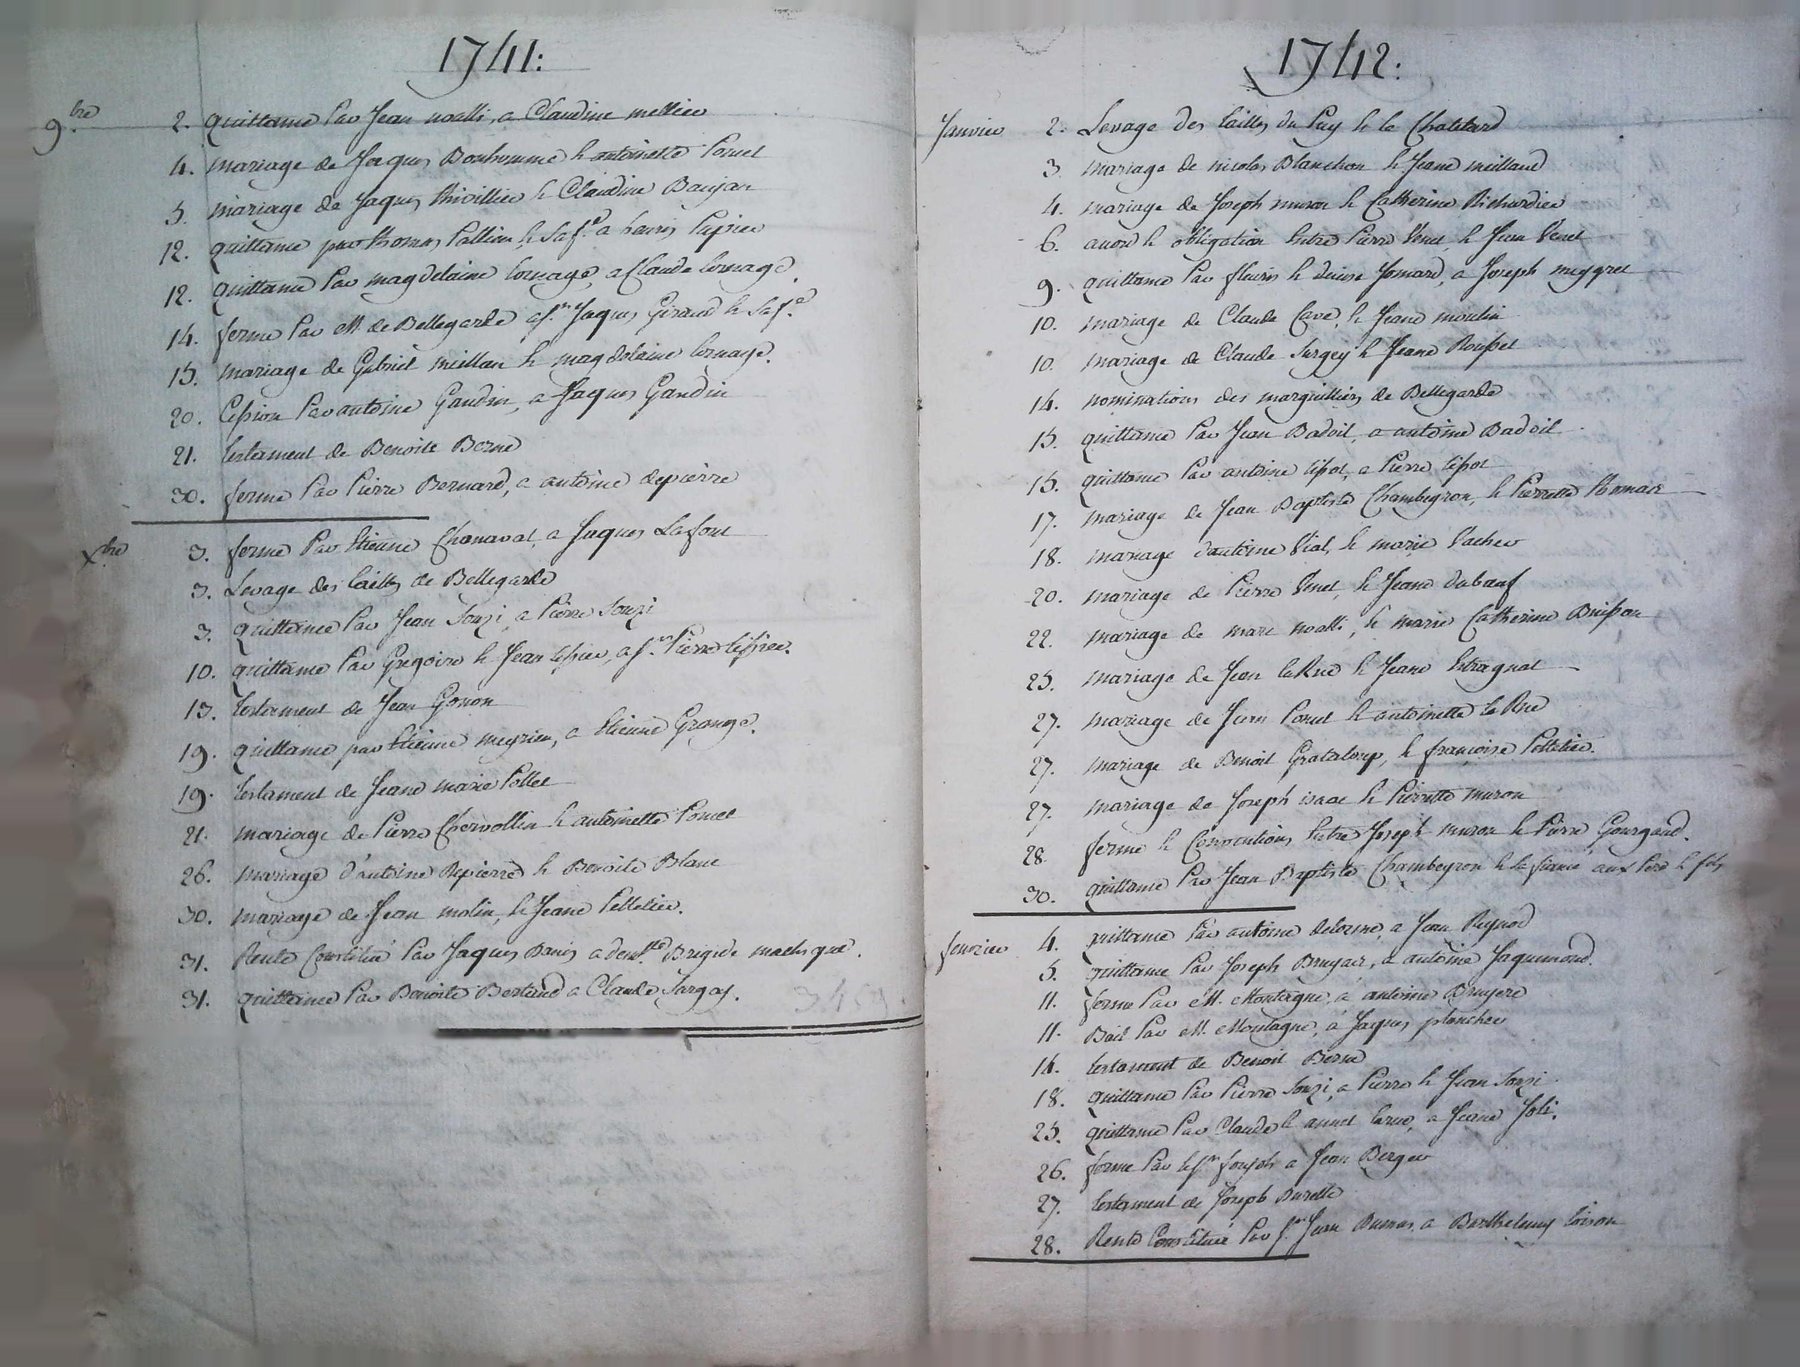 1741:
9.bre 2. quittance Par Jean noalli, a Claudine mellier
4. mariage de Jaques Bonhomme & antoinette Poncet
5. mariage de Jaques thivillier & Claudine Baujan
12. quittance par thomas Pallion & Sa f.e a henris Papier
12. quittance Par magdelaine Cornage, a Claude Cornage.
14. ferme Par M. de Bellegarde a s.r Jaques Giraud & Sa f.e
15. mariage de Gabriel meillan & magdelaine Cornage.
20. Cession Par antoine Gaudin, a Jaques Gaudin
21. testament de Benoite Berne
30. ferme Par Pierre Bernard, a antoine depierre
X.bre 3. ferme Par Etienne Chanavat, a Jaques Lafont
3. Levage des tailles de Bellegarde
3. quittance Par Jean Souzi, a Pierre Souzi
10. quittance Par Gregoire & Jean tissier, a s.r Pierre tissier.
13. testament de Jean Gonon
19. quittance par Etienne meyrieu, a Etienne Grange.
19. testament de Jeane marie Pollet
21. mariage de Pierre Chervollin & antoinette Poncet
26. mariage d'antoine Depierre & Benoite Blanc
30. mariage de Jean molin, & Jeane Pelletier.
31. Rente Constituée Par Jaques Danis a dem.lle Brigide
31. quittance Par Benoite Bertaud a Claude Sargay.
1742:
Janvier 2. Levage des tailles du Puy & le Chatelard
3. mariage de nicolas Blanchon & Jeane meilland
4. mariage de Joseph muron & Catherine Richardier
6. & obligation Entre Pierre Venet & Jean Venet
9. quittance Par fleuris & Jomard, a Joseph meygret
10. mariage de Claude Cave, & Jeane moulin
10. mariage de Claude Sargey & Jeane Rousset
14. nominations des marguilliers de Bellegarde
15. quittance Par Jean Badoil, a antoine Badoil
15. quittance Par antoine tissot, a Pierre tissot
17. mariage de Jean Baptiste Chambeyron, & Pierrette Romair
18. mariage d'antoine Vial, & marie Vacher
20. mariage de Pierre Venet, & Jeane dubœuf
22. mariage de marc noalli, & marie Catherine Buisson
25. mariage de Jean laRue & Jeane Estragnat
27. mariage de Jean Poncet & antoinette la Rue
27. mariage de Benoit Grataloup, & françoise Pelletier.
27. mariage de Joseph isaac & Pierrette muron
28. ferme & Conventions Entre Joseph muron & Pierre Gourgaud.
30. quittance Par Jean Baptiste Chambeyron & la fiancé aux Pere & fils
fevrier 4. quittance Par antoine delorme, a Jean Reynod
5. quittance Par Joseph Bruyair, a antoine Jaquemond.
11. ferme Par M. Montagne, a antoine Bruyere
11. Bail Par M. Montagne, a Jaques plancher
14. testament de Benoit Berne
18. quittance Par Pierre Souzi, a Pierre & Jean Souzi
25. quittance Par Claude & annet larue, a Jeane Joli.
26. ferme Par le s.r a Jean Berger
27. testament de Joseph Burelle
28. Rente Constituée Par s.r Jean Dumas a Barthelemy loison